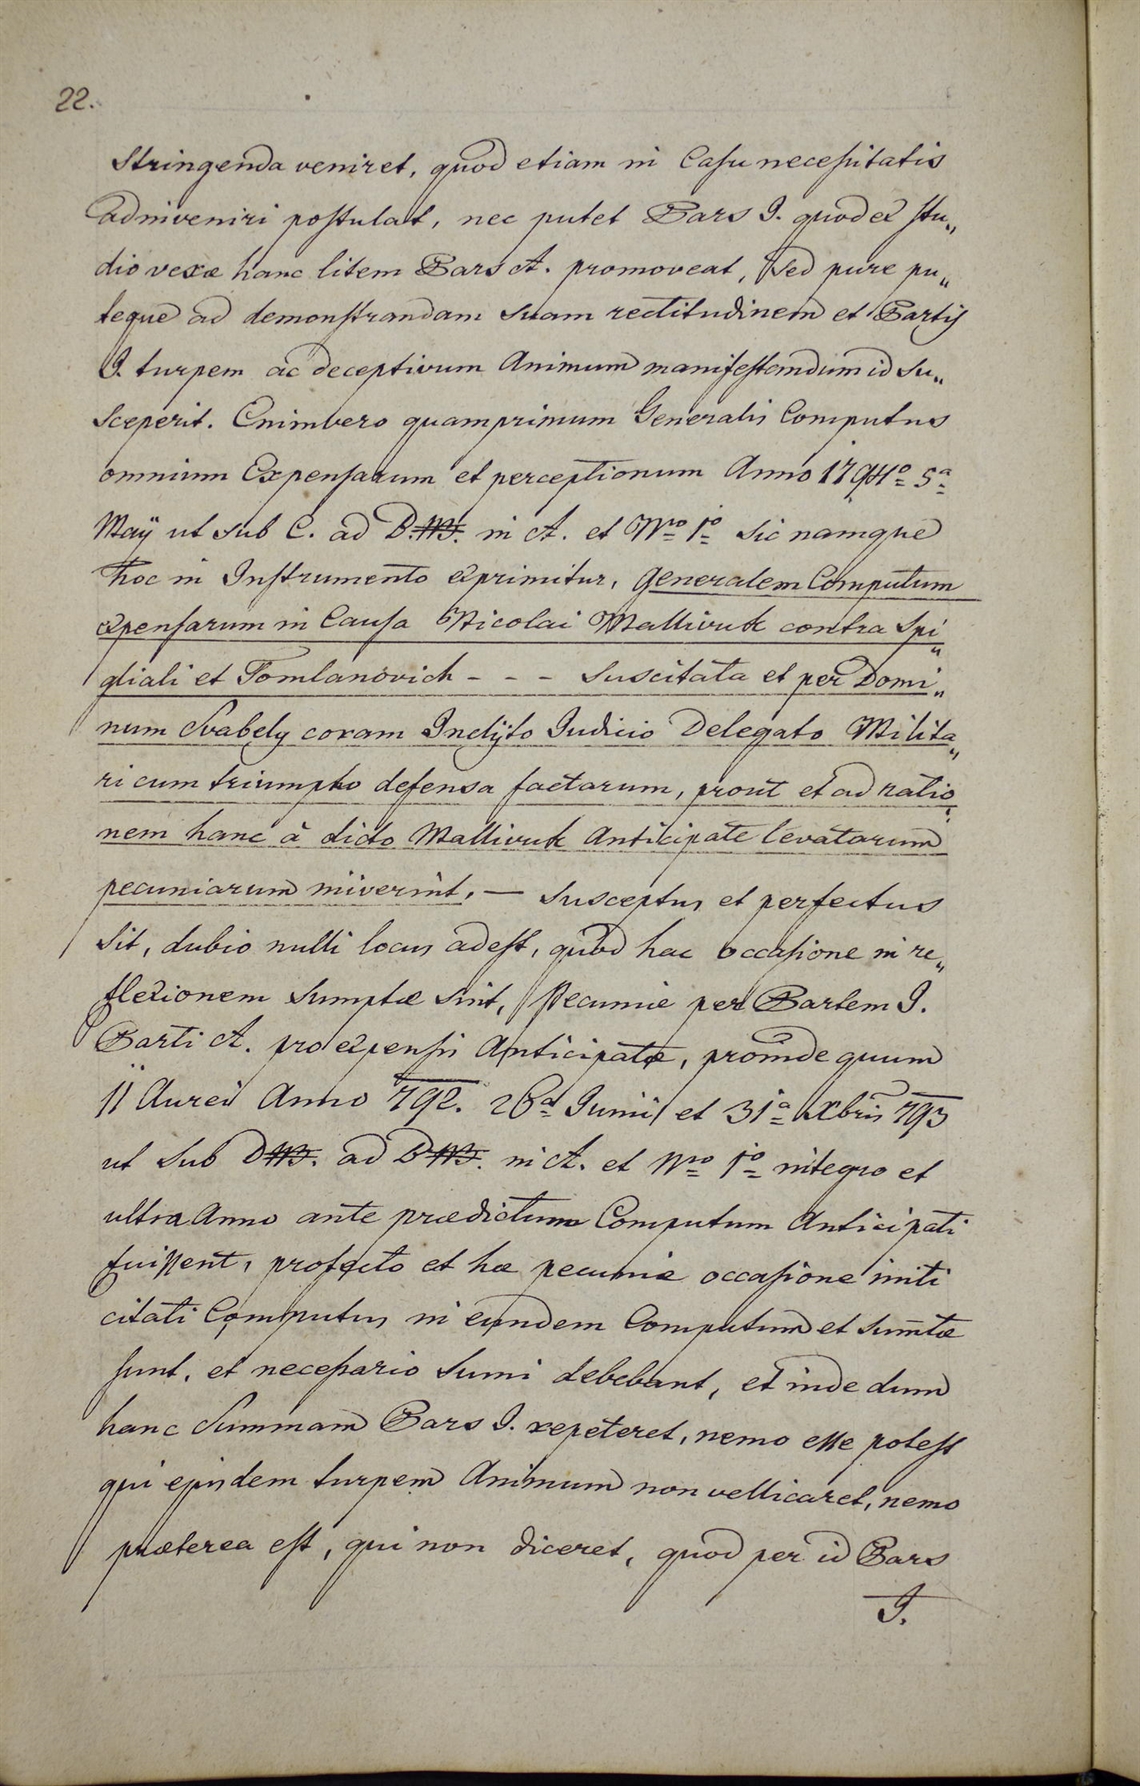 22.
stringenda veniret, quod etiam in Casu necessitatis
adinveniri postulat, nec putet Pars I. quod ex stu„
dio vexæ hanc litem Pars A. promoveat, sed pure pu„
teque ad demonstrandam suam rectitudinem et Partis
I. turpem ac deceptivum Animum manifestandum id su„
sceperit. Enimvero quamprimum Generalis Computus
omnium Expensarum et perceptionum Anno 1794o 5a
Maÿ ut sub C. ad in A. et Nro 1o sic namque
hoc in Instrumento exprimitur, Generalem Computum
expensarum in Causa Nicolai Mallivuk contra Spi„
gliali et Tomlanovich - - - suscitata et per Domi„
num Svabely coram Inclÿto Iudicio Delegato Milita„
ri cum triumpho defensa factarum, prout et ad ratio„
nem hanc à dicto Mallivuk Anticipate levatarum
pecuniarum iniverint, — susceptus et perfectus
sit, dubio nulli locus adest, quod hac occasione in re„
flexionem sumptæ sint, Pecuniæ per Partem I.
Parti A. pro expensis Anticipatæ, proinde quum
11 Aurei Anno 792. 26a Iunii et 31a Xbris 793
ut sub ad in A. et Nro 1o integro et
ultra Anno ante prædictum Computum Anticipati
fuissent, profecto et hæ pecuniæ occasione initi
citati Computus in eundem Computum et sumtæ
sunt, et necessario sumi debebant, et inde dum
hanc Summam Pars I. repeteret, nemo esse potest
qui ejusdem turpem Animum non vellicaret, nemo
præterea est, qui non diceret, quod per id Pars
I.